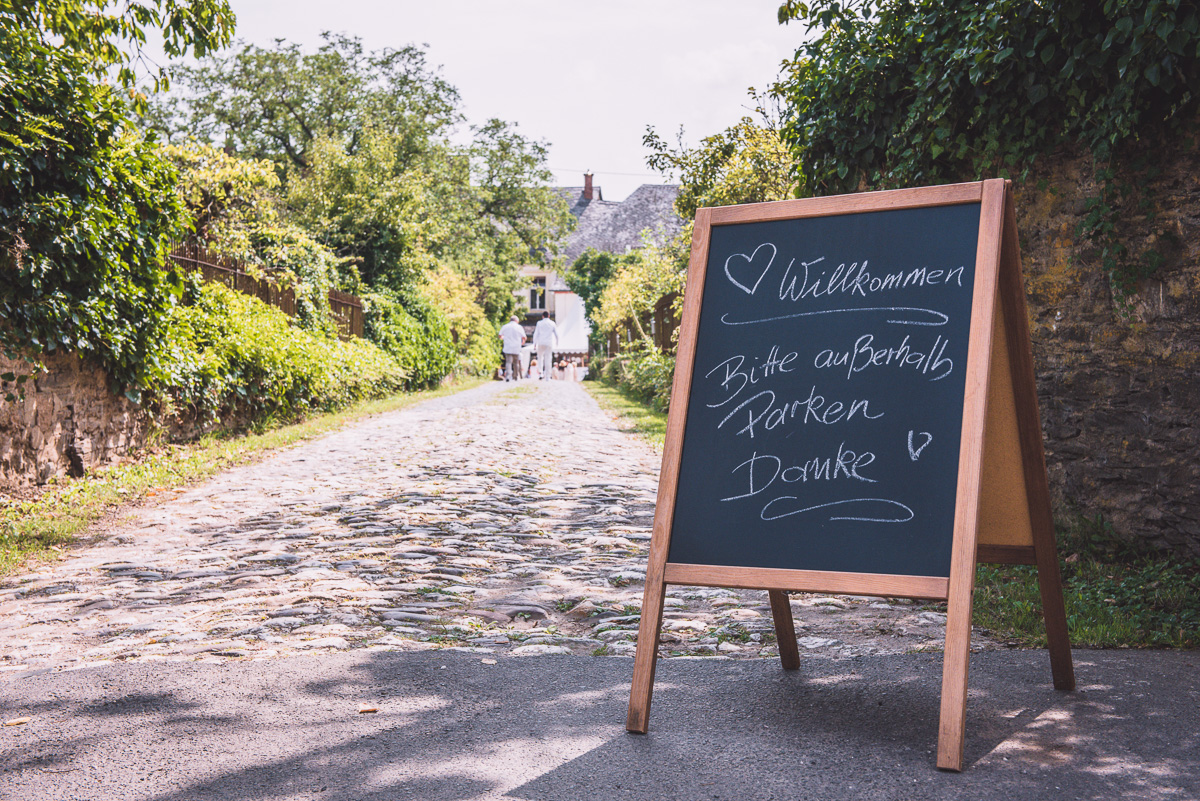 Willkommen
Bitte außerhalb
Parken
Danke